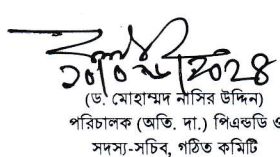 (ড. মোহাম্মদ নাসির উদ্দিন)
পরিচালক (অতি. দা.) পিএন্ডডি ও
সদস্য-সচিব, গঠিত কমিটি